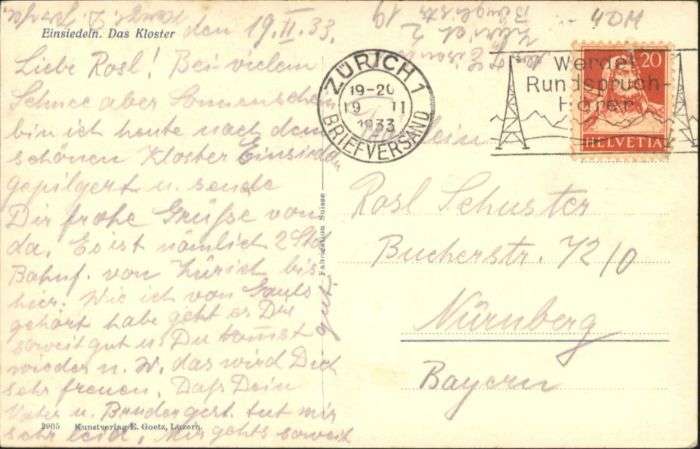 Einsiedeln. Das Kloster
den 19. II. 33.
Liebe Rosl! Bei vielem
Schnee aber Sonnenschein
bin ich heute nach dem
schönen Kloster Einsiedeln
gepilgert u. sende
Dir frohe Grüße von
da. Es ist nämlich 2 Std
Bahnf. von Zürich bis
hier. Wie ich von
gehört habe geht es Dir
soweit gut u. Du kommst
wieder n. W. das wird Dich
sehr freuen. Daß Dein
Vater u. Bruder gest. tut mir
sehr leid, Mir gehts soweit
gut.
2965 Kunstverlag E. Goetz, Luzern.
Fabrication Suisse
40M
ZÜRICH 1
19-20
19 II
1933
BRIEFVERSAND
Werdet
Rundspruch-
Hörer
20
HELVETIA
Fräulein
Rosl Schuster
Bucherstr. 72/0
Nürnberg
Bayern